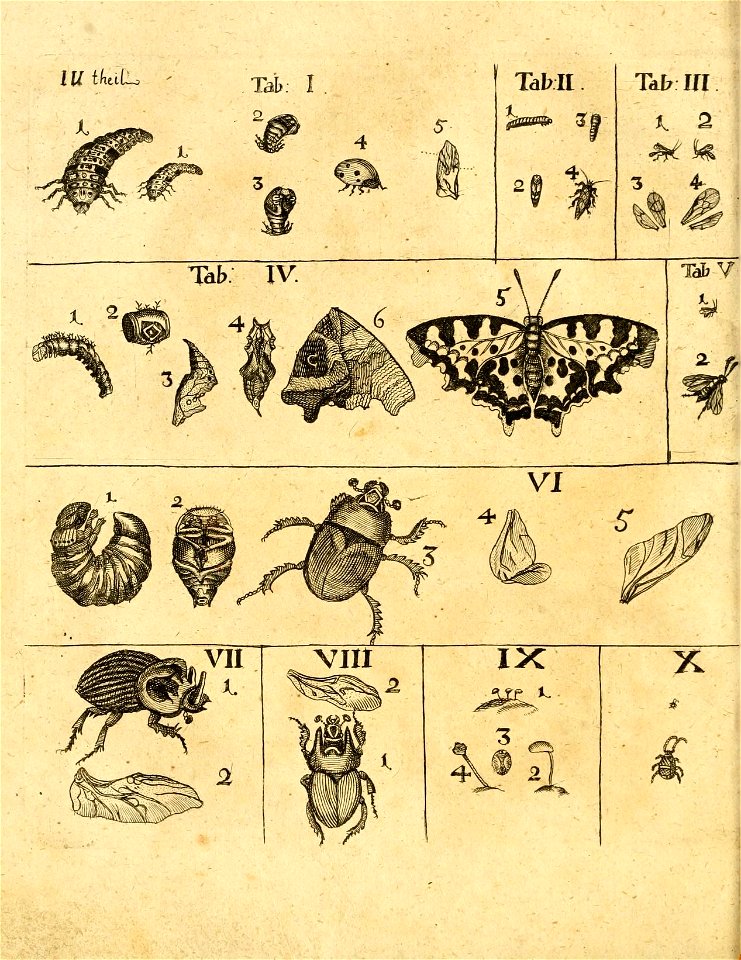 III theil
Tab: I.
Tab: II.
Tab: III.
1
1
2
3
4
5
1
3
2
4
1
2
3
4
Tab: IV.
Tab V
1
2
3
4
6
5
1
2
VI
1
2
3
4
5
VII
VIII
IX
X
1
2
2
1
1
3
4
2